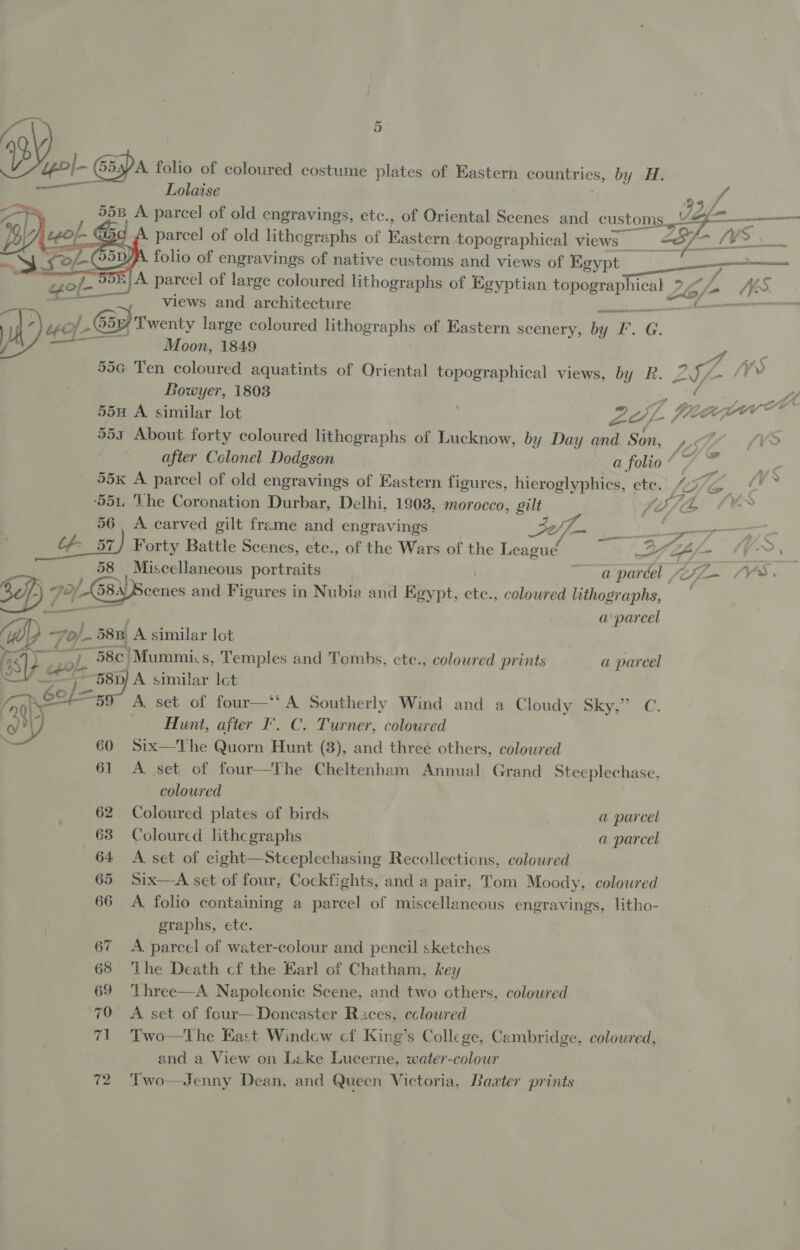 5
40/- 55A A folio of coloured costume plates of Eastern countries, by H.
Lolaise
55B A parcel of old engravings, etc., of Oriental Scenes and customs
40/- 55C A parcel of old lithographs of Eastern topographical views NS
50/- 55D A folio of engravings of native customs and views of Egypt
40/- 55E A parcel of large coloured lithographs of Egyptian topographical 26/- NS
views and architecture
40/- 55F Twenty large coloured lithographs of Eastern scenery, by F. G.
Moon, 1849
55G Ten coloured aquatints of Oriental topographical views, by R. 25/- NS
Bowyer, 1803
55H A similar lot
55J About forty coloured lithographs of Lucknow, by Day and Son, NS
after Colonel Dodgson a folio
55K A parcel of old engravings of Eastern figures, hieroglyphics, etc. NS
55L The Coronation Durbar, Delhi, 1903, morocco, gilt NS
56 A carved gilt frame and engravings 30/-
57 Forty Battle Scenes, etc., of the Wars of the League NS
58 Miscellaneous portraits a parcel NS
30/- 70/- 58A Scenes and Figures in Nubia and Egypt, etc., coloured lithographs,
a parcel
70/- 58B A similar lot
40/- 58C Mummies, Temples and Tombs, etc., coloured prints a parcel
58D A similar lot
60/- 59 A set of four—“A Southerly Wind and a Cloudy Sky,” C.
Hunt, after F. C. Turner, coloured
60 Six—The Quorn Hunt (3), and three others, coloured
61 A set of four—The Cheltenham Annual Grand Steeplechase,
coloured
62 Coloured plates of birds a parcel
63 Coloured lithographs a parcel
64 A set of eight—Steeplechasing Recollections, coloured
65 Six—A set of four, Cockfights, and a pair, Tom Moody, coloured
66 A folio containing a parcel of miscellaneous engravings, litho-
graphs, etc.
67 A parcel of water-colour and pencil sketches
68 The Death of the Earl of Chatham, key
69 Three—A Napoleonic Scene, and two others, coloured
70 A set of four—Doncaster Races, coloured
71 Two—The East Window of King's College, Cambridge, coloured,
and a View on Lake Lucerne, water-colour
72 Two—Jenny Dean, and Queen Victoria, Baxter prints